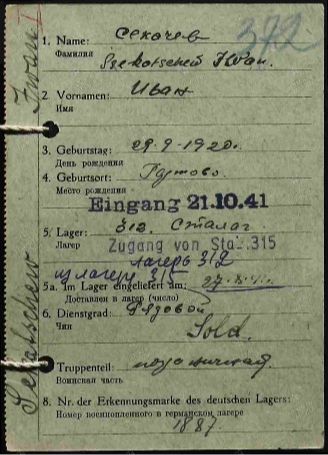 372
1. Name: Секачев
Фамилия
Szekatscheu Iwan.
2. Vornamen: Иван
Имя
3. Geburtstag: 29-9-1920г.
День рождения
4. Geburtsort:
Место рождения
Eingang 21.10.41
5. Lager: 312 Сталаг
Лагерь
Zugang von Sta. 315
лагерь 312
из лагеря 315
5a. im Lager eingeliefert am:
Доставлен в лагерь (число)
6. Dienstgrad: Рядовой
Чин
Sold.
Truppenteil:
Воинская часть
8. Nr. der Erkennungsmarke des deutschen Lagers:
Номер военнопленного в германском лагере
1887
Sekatschew
Iwan I